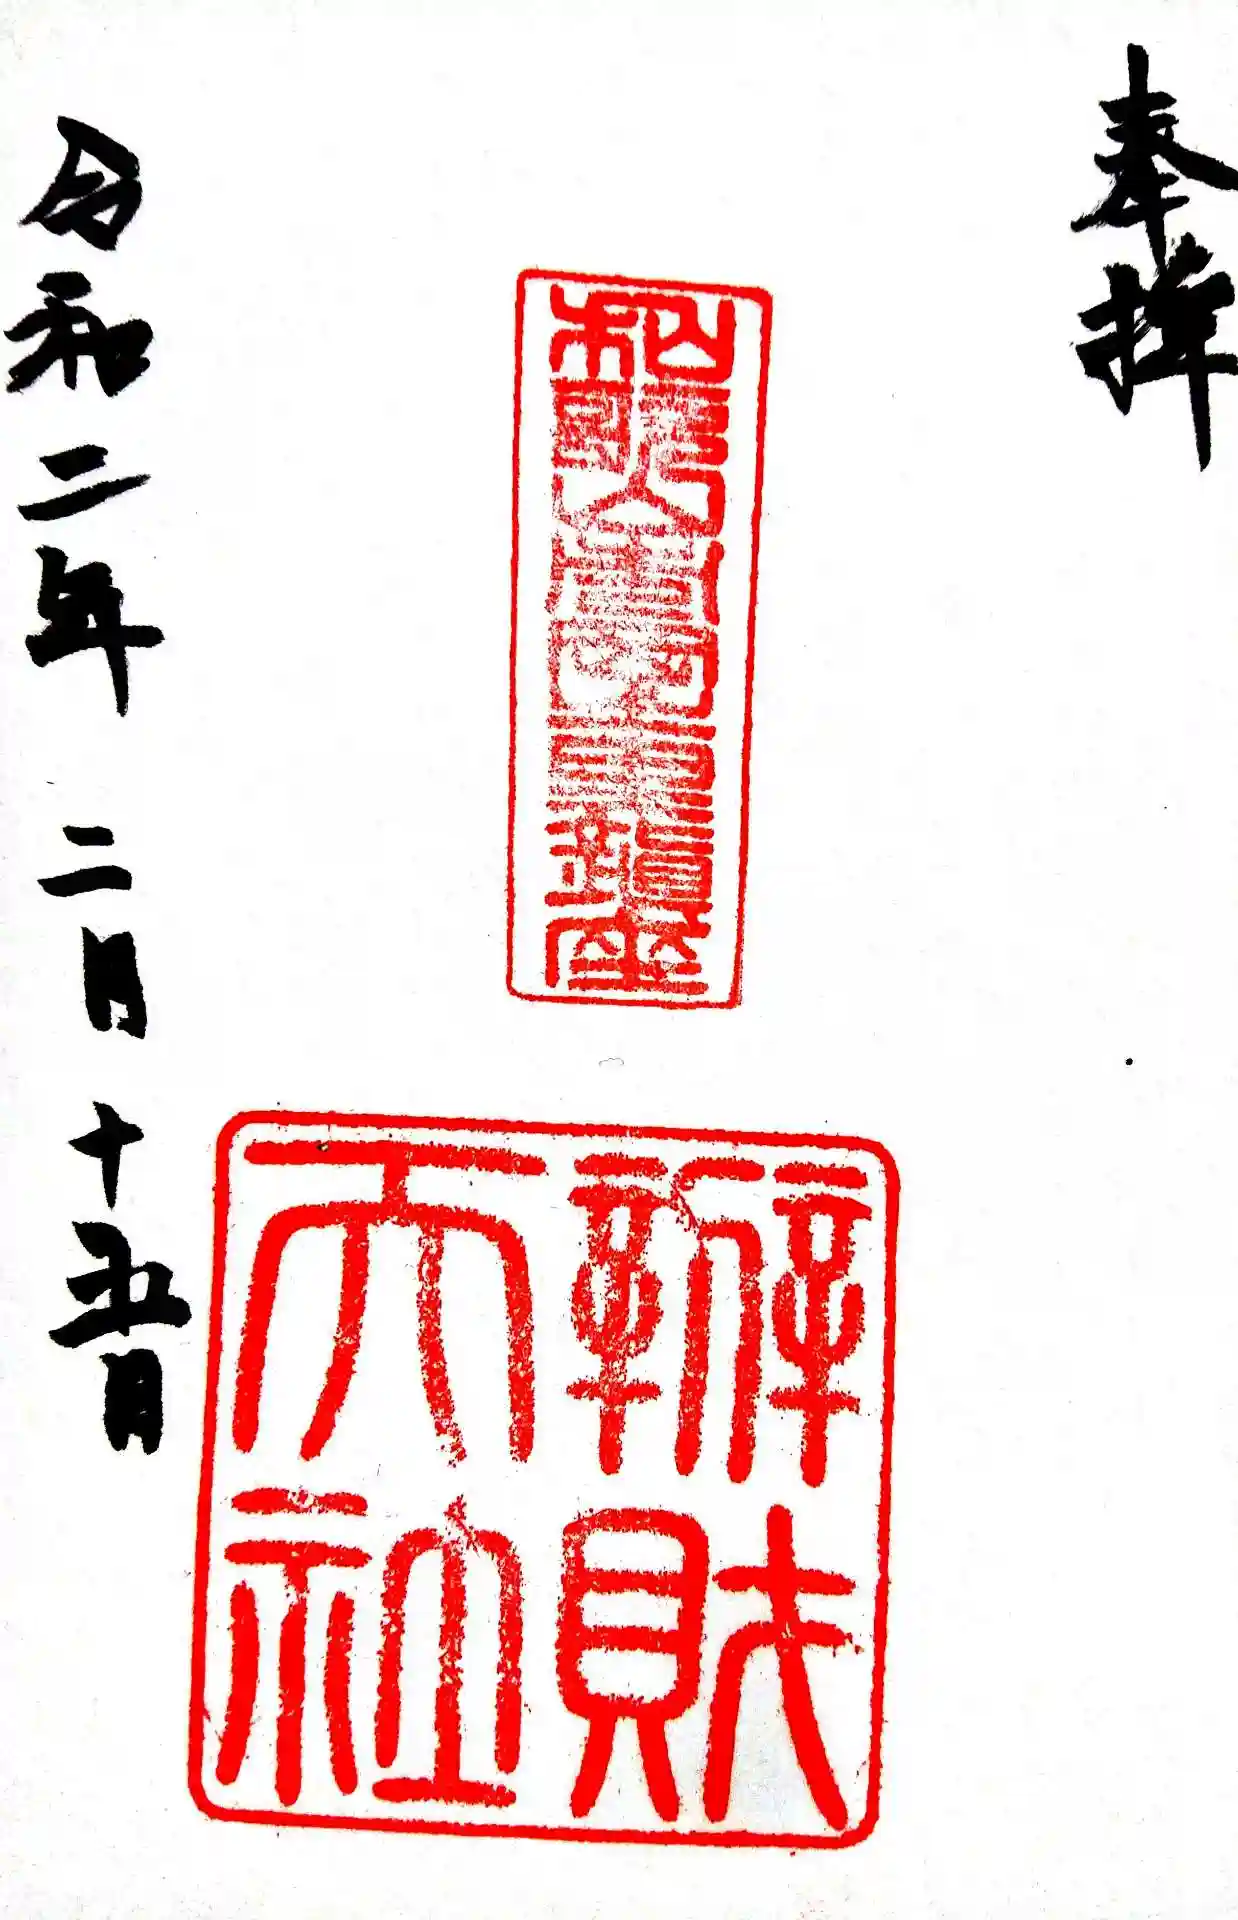 奉拝
鎮座
辨財
天社
令和二年 二月十五日